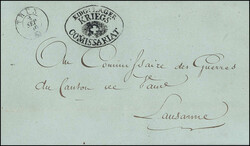 EIDG. LAGER
KRIEGS
COMISSARIAT
Au Commissaire des Guerres
du Canton de Vaud
Lausanne